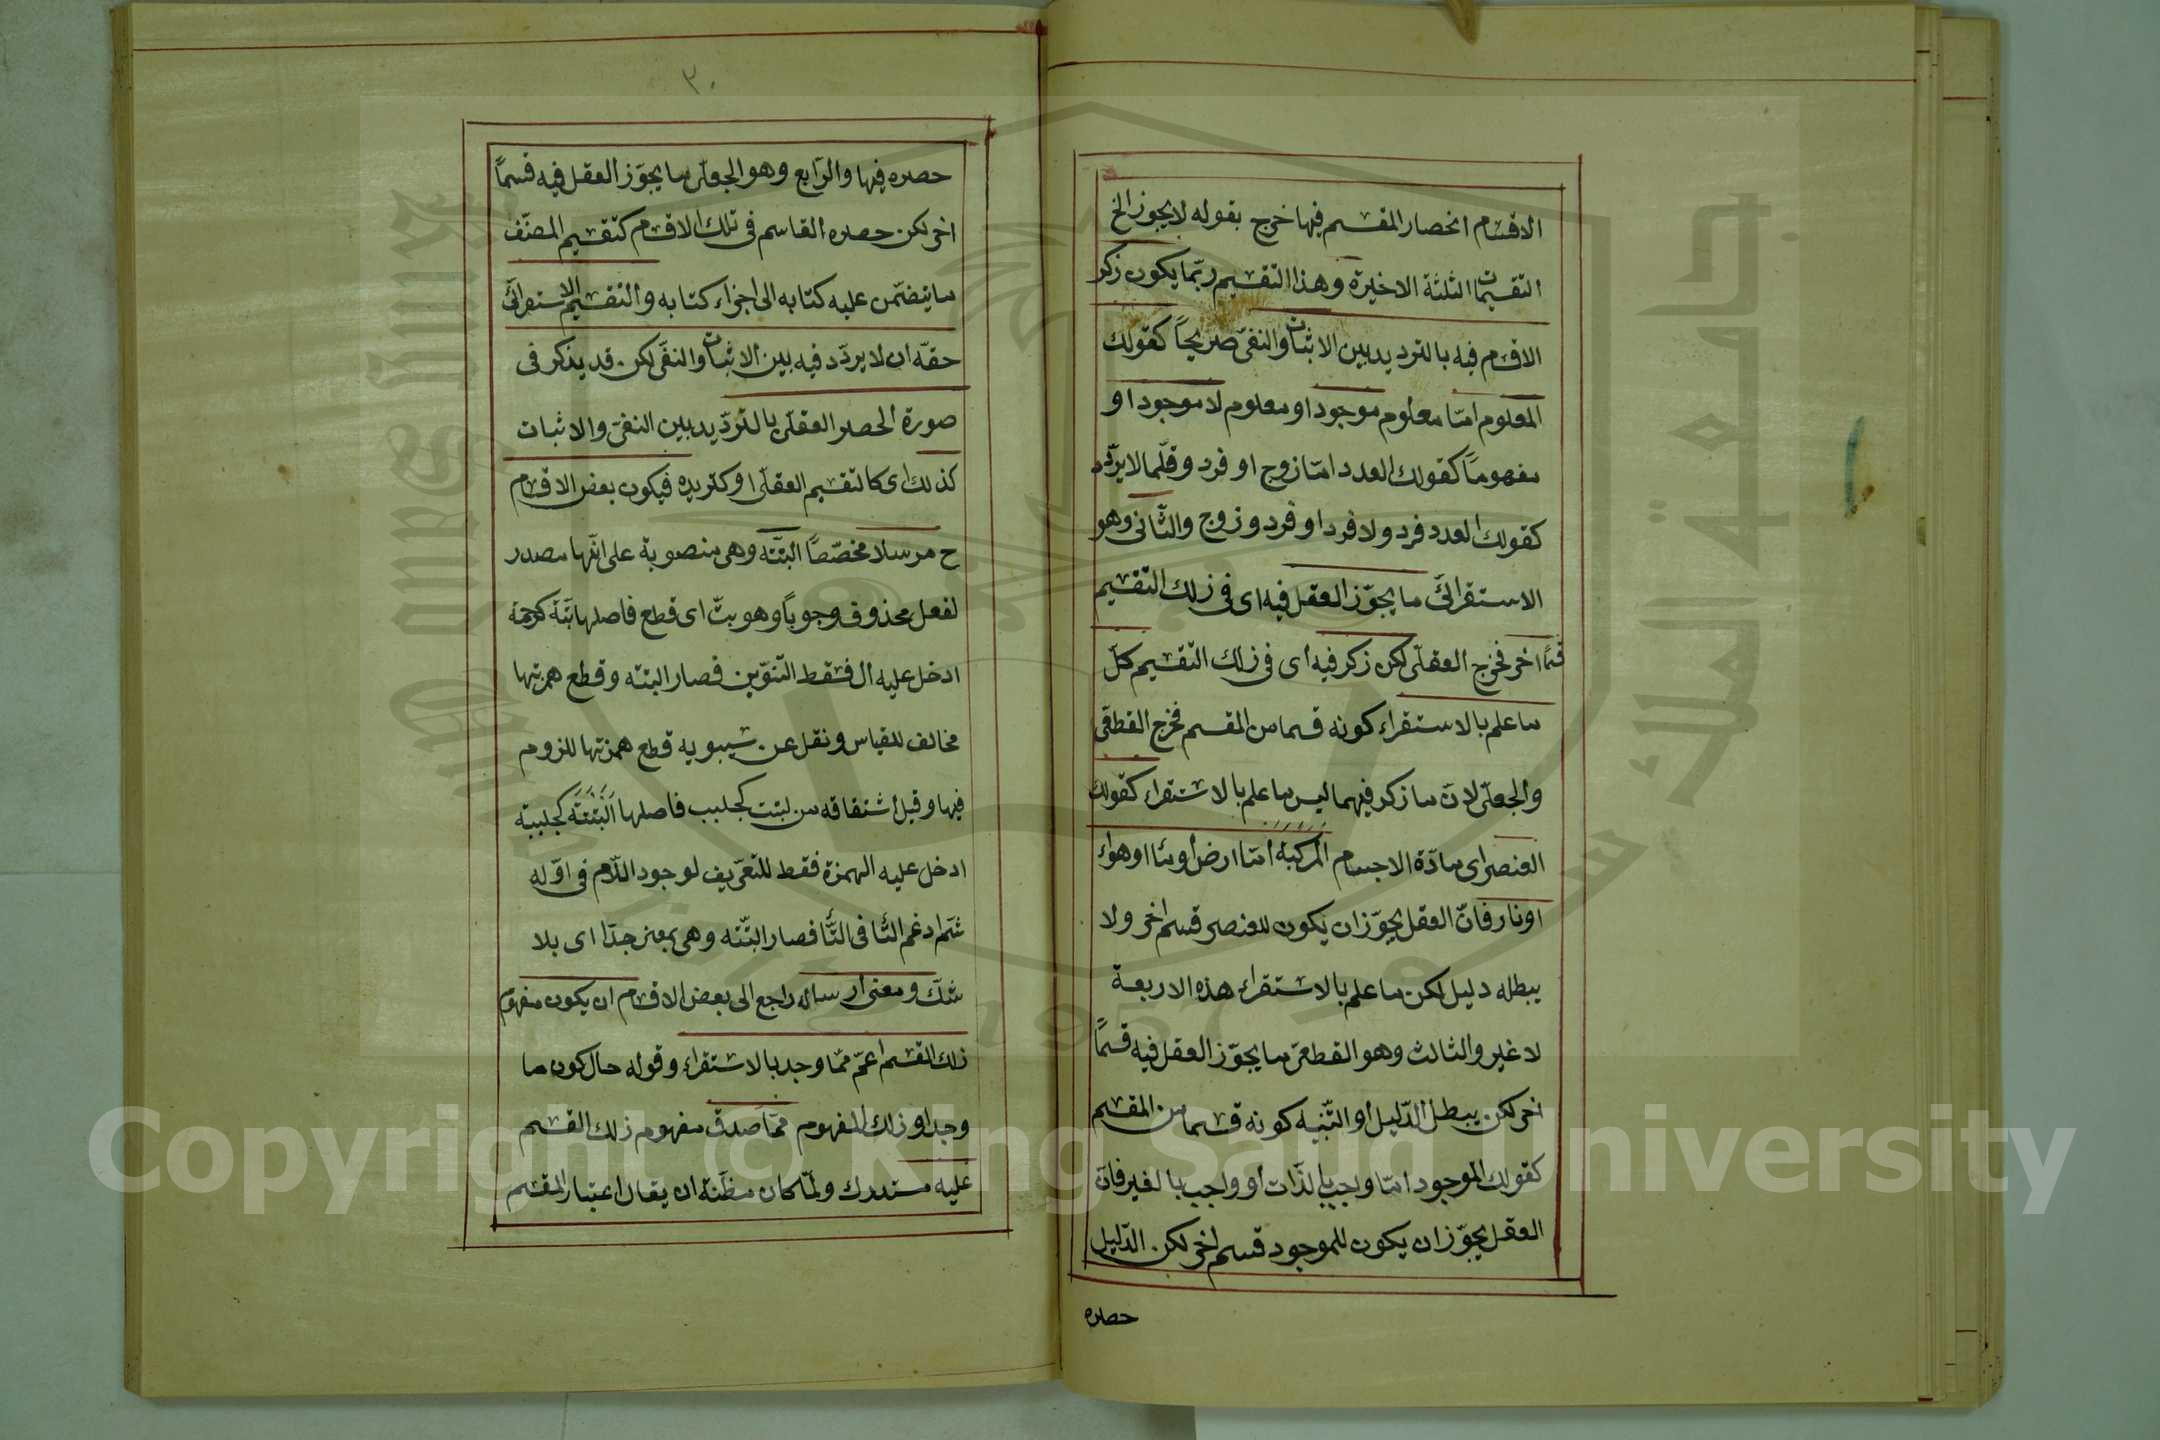 الاقسام انحصار المقسم فيها خرج بقوله لا يجوز الخ
التقسيمات الثلثة الاخيرة وهذا التقسيم ربّما يكون ذكر
الاقسام فيه بالترديد بين الاثبات والنفى صريحًا كقولك
المعلوم امّا معلوم موجود او معلوم لا موجود او
مفهوما كقولك العدد امّا زوج او فرد وقلّما لا يردّد
كقولك العدد فرد ولا فرد او فرد وزوج والثّانى وهو
الاستقرائىّ ما يجوّز العقل فيه اى فى ذلك التقسيم
قسمًا اخر فخرج العقلّى لكن ذكر فيه اى فى ذلك التقسيم كلّ
ما علم بالاستقراء كونه قسما من المقسم فخرج القطعّى
والجعلّى لانّ ما ذكر فيهما ليس ما علم بالاستقراء كقولك
العنصر اى مادّة الاجسام المركّبة امّا ارض او ماا او هواء
او نار فانّ العقل يجوّز ان يكون للعنصر قسم اخر ولا
يبطله دليل لكن ما علم بالاستقراء هذه الاربعة
لا غير والثالث وهو القطعىّ ما يجوّز العقل فيه قسمًا
اخر لكن يبطل الدّليل او التّنبيه كونه قسما من المقسم
كقولك الموجود امّا واجب بالذّات او واجب بالغير فانّ
العقل يجوّز ان يكون للموجود قسم اخر لكن الدّليل
حصره
٣٠
حصره فيها والرّابع وهو الجعلّى ما يجوّز العقل فيه قسمًا
اخر لكن حصره القاسم فى تلك الاقسام كتقسيم المصنّف
ما يتضمّن عليه كتابه الى اجزاء كتابه والتقسيم الاستقرائىّ
حقّه ان لا يردّد فيه بين الاثبات والنفى لكن قد يذكر فى
صورة الحصر العقلّى بالتّرديد بين النفىّ والاثبات
كذلك اى كالتقسيم العقلّى او كترديده فيكون بعض الاقسام
ح مرسلا مخصّصًا البتّة وهى منصوبة على انّها مصدر
لفعل محذوف وجوبًا وهو بتّ اى قطع فاصلها بتّة كرحمة
ادخل عليه ال فسقط التّنوين فصار البتّه وقطع همزتها
مخالف للقياس ونقل عن سيبويه قطع همزتها للزوم
فيها وقيل اشتقاقه من لبتت كجلبب فاصلها اَلَبْتَتَه كجلببة
ادخل عليه الهمزة فقط للتعريف لوجود اللّام فى اوّله
ثم ادغم التّا فى التّا فصار البتّه وهى بمعنى جدّا اى بلا
شكّ ومعنى ارساله راجع الى بعض الاقسام ان يكون مفهوم
ذلك القسم اعمّ ممّا وجد بالاستقراء وقوله حال كون ما
وجد او ذلك المفهوم ممّا صدق مفهوم ذلك القسم
عليه مستدرك ولمّا كان مظنّة ان يقال اعتبار المقسم
Copyright © King Saud University